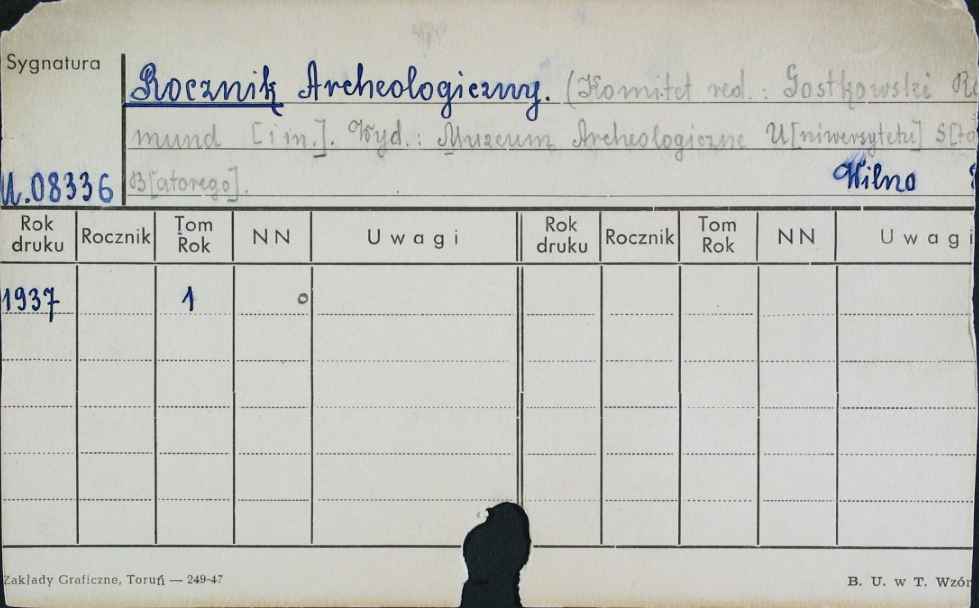 Sygnatura
Rocznik Archeologiczny. (Komitet red.: Gostkowski
mund [i in.]. Wyd.: Muzeum Archeologiczne U[niwersytetu]
U.08336 B[atorego]. Wilno
Rok druku Rocznik Tom Rok NN Uwagi Rok druku Rocznik Tom Rok NN Uwagi
1937 1
Zakłady Graficzne, Toruń — 249-47 B. U. w T. Wzór